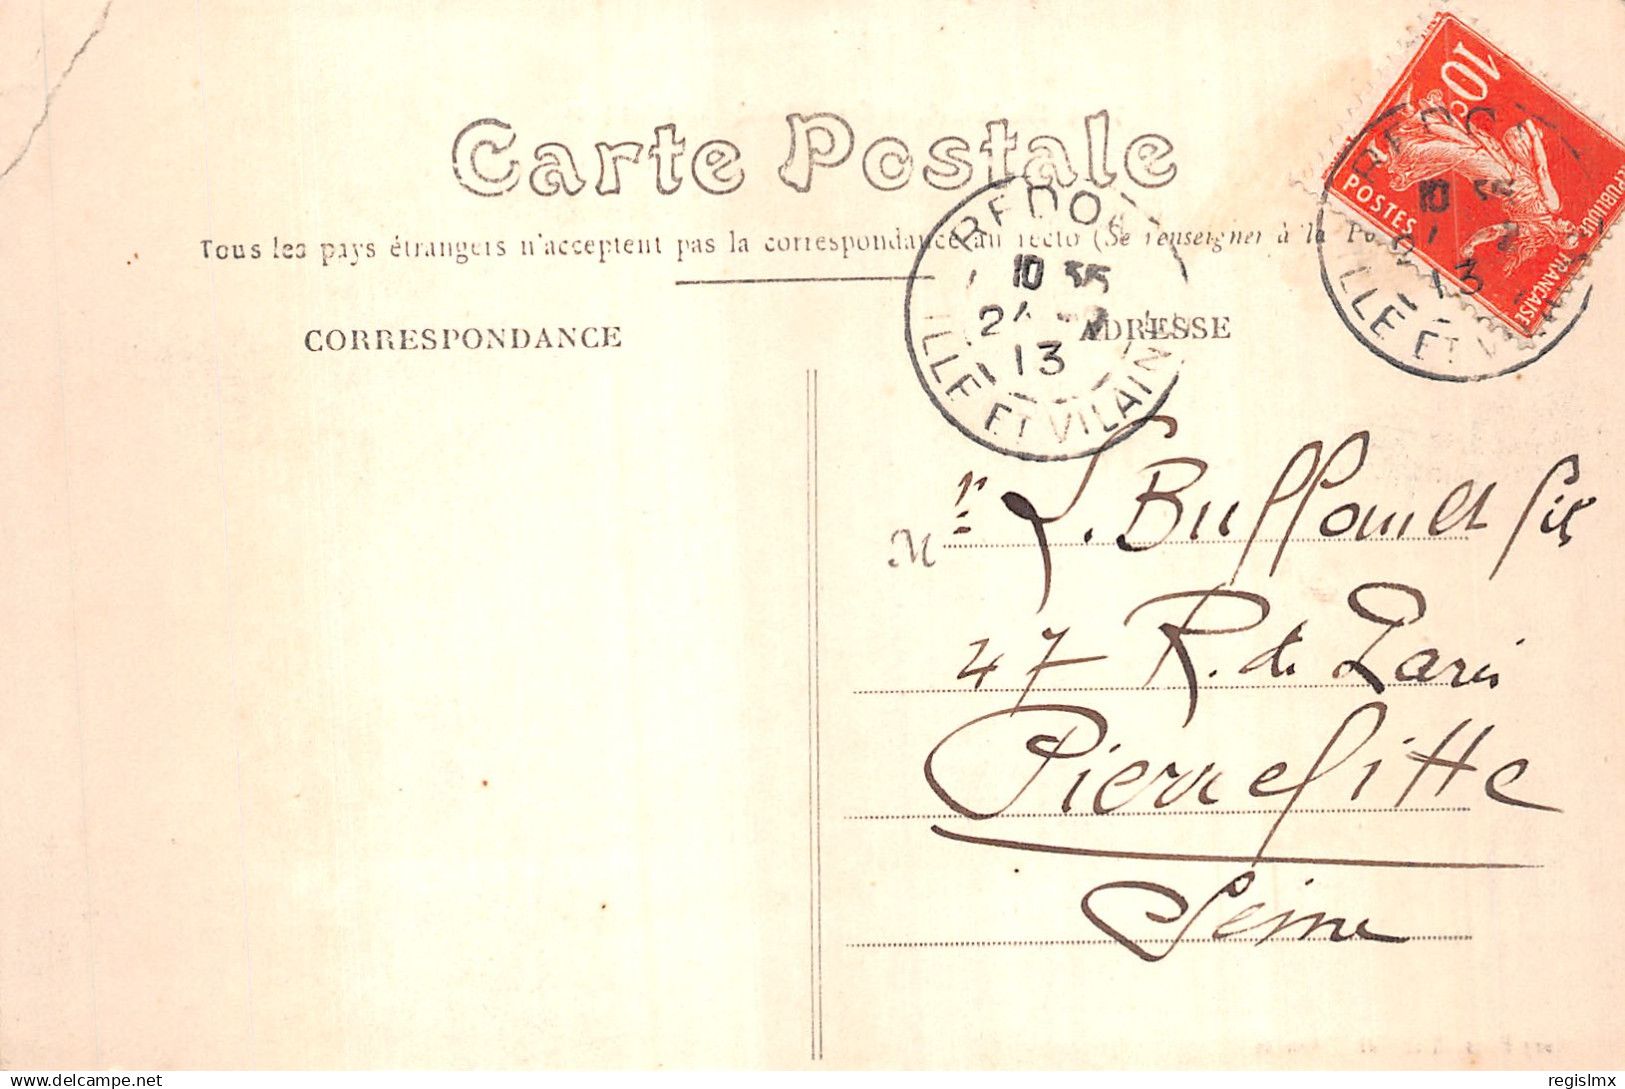 Carte Postale
Tous les pays étrangers n'acceptent pas la correspondance au recto (Se renseigner à la Po
CORRESPONDANCE
ADRESSE
REDO
10 35
13
ILLE ET VILAINE
10c
POSTES
REPUBLIQUE FRANÇAISE
REDO
10 35
13
ILLE ET V
Mr L. Buffault fils
47 R. de Paris
Pierrefitte
Seine
© regislmx